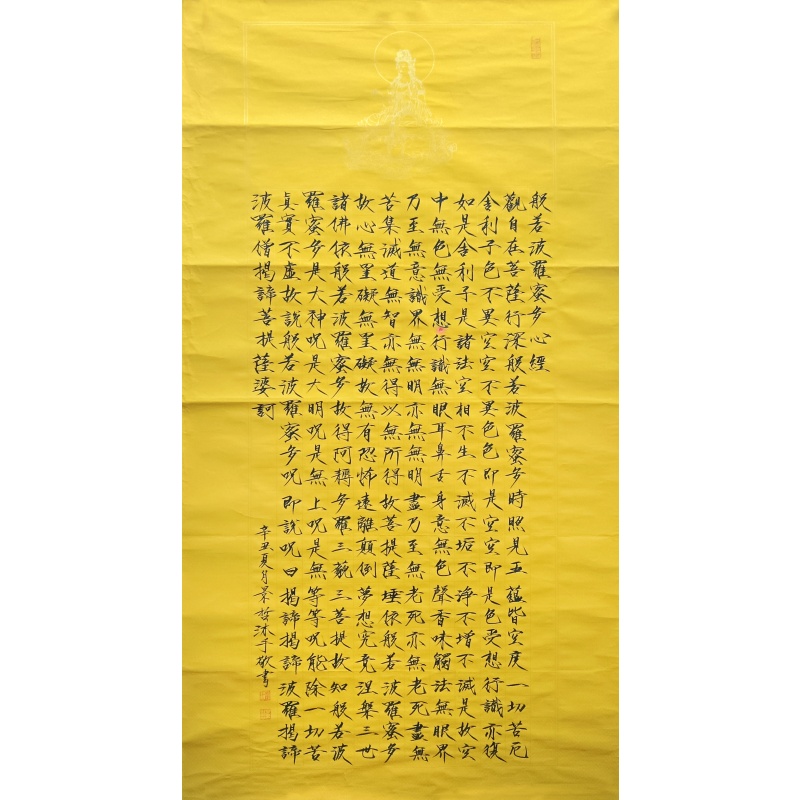 般若波羅蜜多心經
觀自在菩薩行深般若波羅蜜多時照見五蘊皆空度一切苦厄
舍利子色不異空空不異色色即是空空即是色受想行識亦復
如是舍利子是諸法空相不生不滅不垢不淨不增不減是故空
中無色無受想行識無眼耳鼻舌身意無色聲香味觸法無眼界
乃至無意識界無無明亦無無明盡乃至無老死亦無老死盡無
苦集滅道無智亦無得以無所得故菩提薩埵依般若波羅蜜多
故心無罣礙無罣礙故無有恐怖遠離顛倒夢想究竟涅槃三世
諸佛依般若波羅蜜多故得阿耨多羅三藐三菩提故知般若波
羅蜜多是大神呪是大明呪是無上呪是無等等呪能除一切苦
真實不虛故說般若波羅蜜多呪即說呪曰揭諦揭諦波羅揭諦
波羅僧揭諦菩提薩婆訶
辛丑夏月景哲沐手敬書